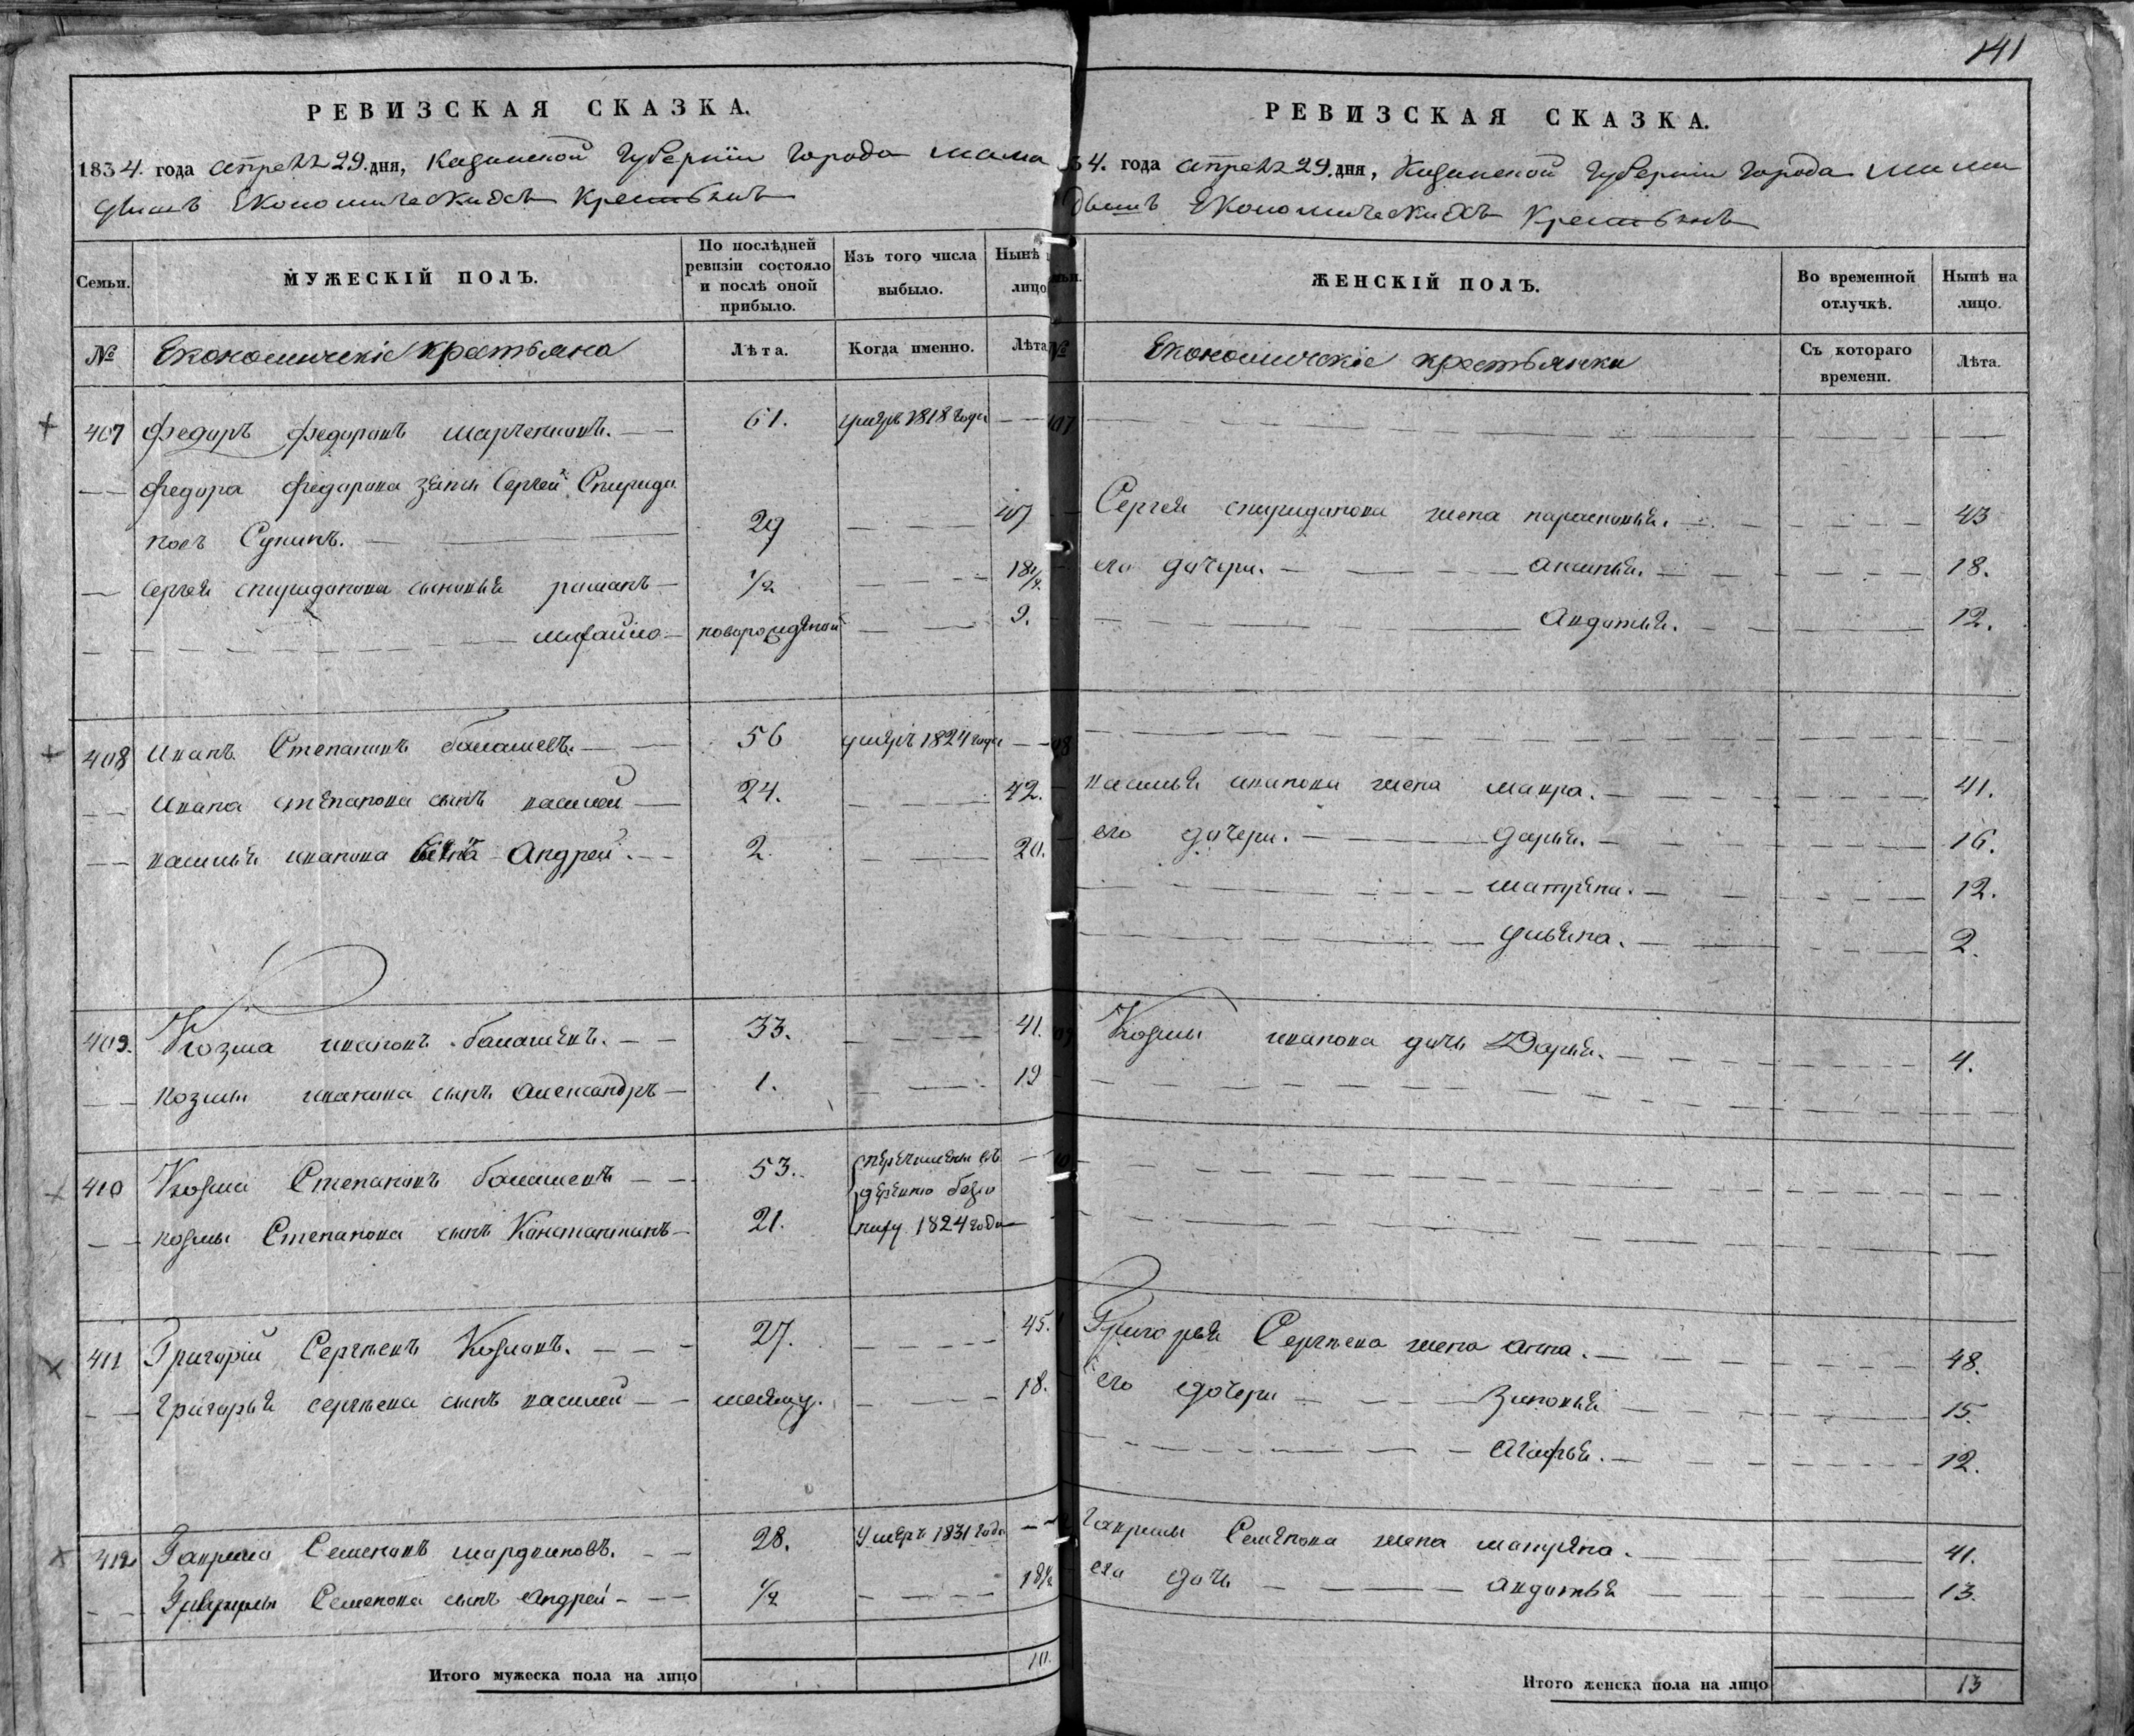 141
РЕВИЗСКАЯ СКАЗКА.
1834. года апреля 29. дня, Казанской Губернiи города мама
дышъ Економическихъ крестьянъ
Семьи.
МУЖЕСКІЙ ПОЛЪ.
По послѣдней
ревизіи состояло
и послѣ оной
прибыло.
Изъ того числа
выбыло.
Нынѣ
лицо
№
Економическіе крестьяна
Лѣта.
Когда именно.
Лѣта
407 федоръ федоровъ 61. умеръ 1818 года
федора федорова зять Сергей Спиридо
новъ 29 47
Сергея спиридонова сыновья романъ 1/2 18 1/2
михайло новорожденой 9.
408 иванъ Степановъ балашевъ. 56 умеръ 1824 года
ивана степанова сынъ василей 24. 42.
василья иванова Андрей. 2. 20.
409. Козма ивановъ балашевъ. 33. 41.
козмы иванова сынъ александръ 1. 19
410 Козма Степановъ балашевъ 53. перечислены въ
деревню
козмы Степанова сынъ Константинъ 21. 1824 года
411 Григорій Сергѣевъ Козловъ. 27. 45.
григорья сергѣева сынъ василей 18.
412 Гаврила Семеновъ 28. Умеръ 1831 года
Гаврилы Семенова сынъ Андрей 1/2 18 1/2
Итого мужеска пола на лицо 10.
РЕВИЗСКАЯ СКАЗКА.
34. года апреля 29. дня, Казанской Губернiи города мама
дышъ Економическихъ Крестьянъ
ЖЕНСКІЙ ПОЛЪ.
Во временной
отлучкѣ.
Нынѣ на
лицо.
№
Економическіе крестьянки
Съ котораго
времени.
Лѣта.
Сергея спиридонова жена парасковья. 43
его дочери. аксинья. 18.
авдотья. 12.
василья иванова жена мавра. 41.
его дочери. дарья. 16.
матрена. 12.
ульяна. 2.
Козмы иванова дочь Дарья. 4.
Григорья Сергѣева жена анна. 48.
его дочери Зиновья 15.
агафья. 12.
гаврилы Семенова жена матрена. 41.
его дочь авдотья 13.
Итого женска пола на лицо 13